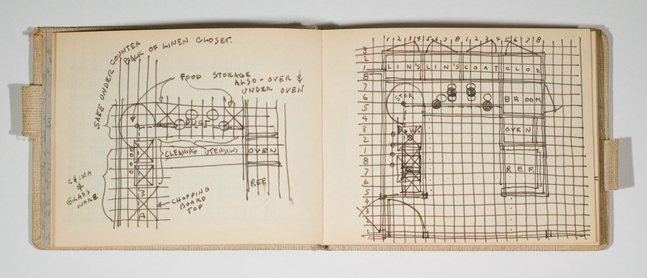 SAFE UNDER COUNTER
BACK OF LINEN CLOSET.
FOOD STORAGE
ALSO - OVER &
UNDER OVEN
CLEANING UTENSILS
OVEN
REF
CHINA
&
GLASS
WARE
3
A
CHOPPING
BOARD
TOP
1 2 3 4 5 6 7 8 1 2 3 4 5 6 7 8
LIN'S LIN'S COAT CLOS
BROOM
OVEN
REF.